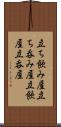 立ち飲み屋立
ち呑み屋立飲
屋立呑屋